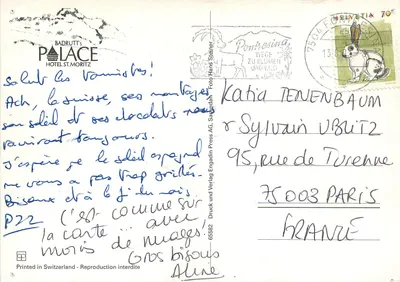 BADRUTT'S
PALACE
HOTEL ST. MORITZ
Pontresina
HELVETIA 70
Salut les touristes!
Ach, la Suisse, ses montages
son soleil et ses chocolats nous
raviront toujours.
J'espère que le soleil espagnol
ne vous a pas trop grillés.
Bisous et à la fin du mois.
C'est comme sur
la carte... avec
moins de nuages!
Gros bisous
Aline
Katia TENENBAUM
Sylvain UBLITZ
95, rue de Turenne
75003 PARIS
FRANCE
65582 Druck und Verlag Engadin Press AG, Samedan Foto: Hans Steiner
Printed in Switzerland - Reproduction interdite